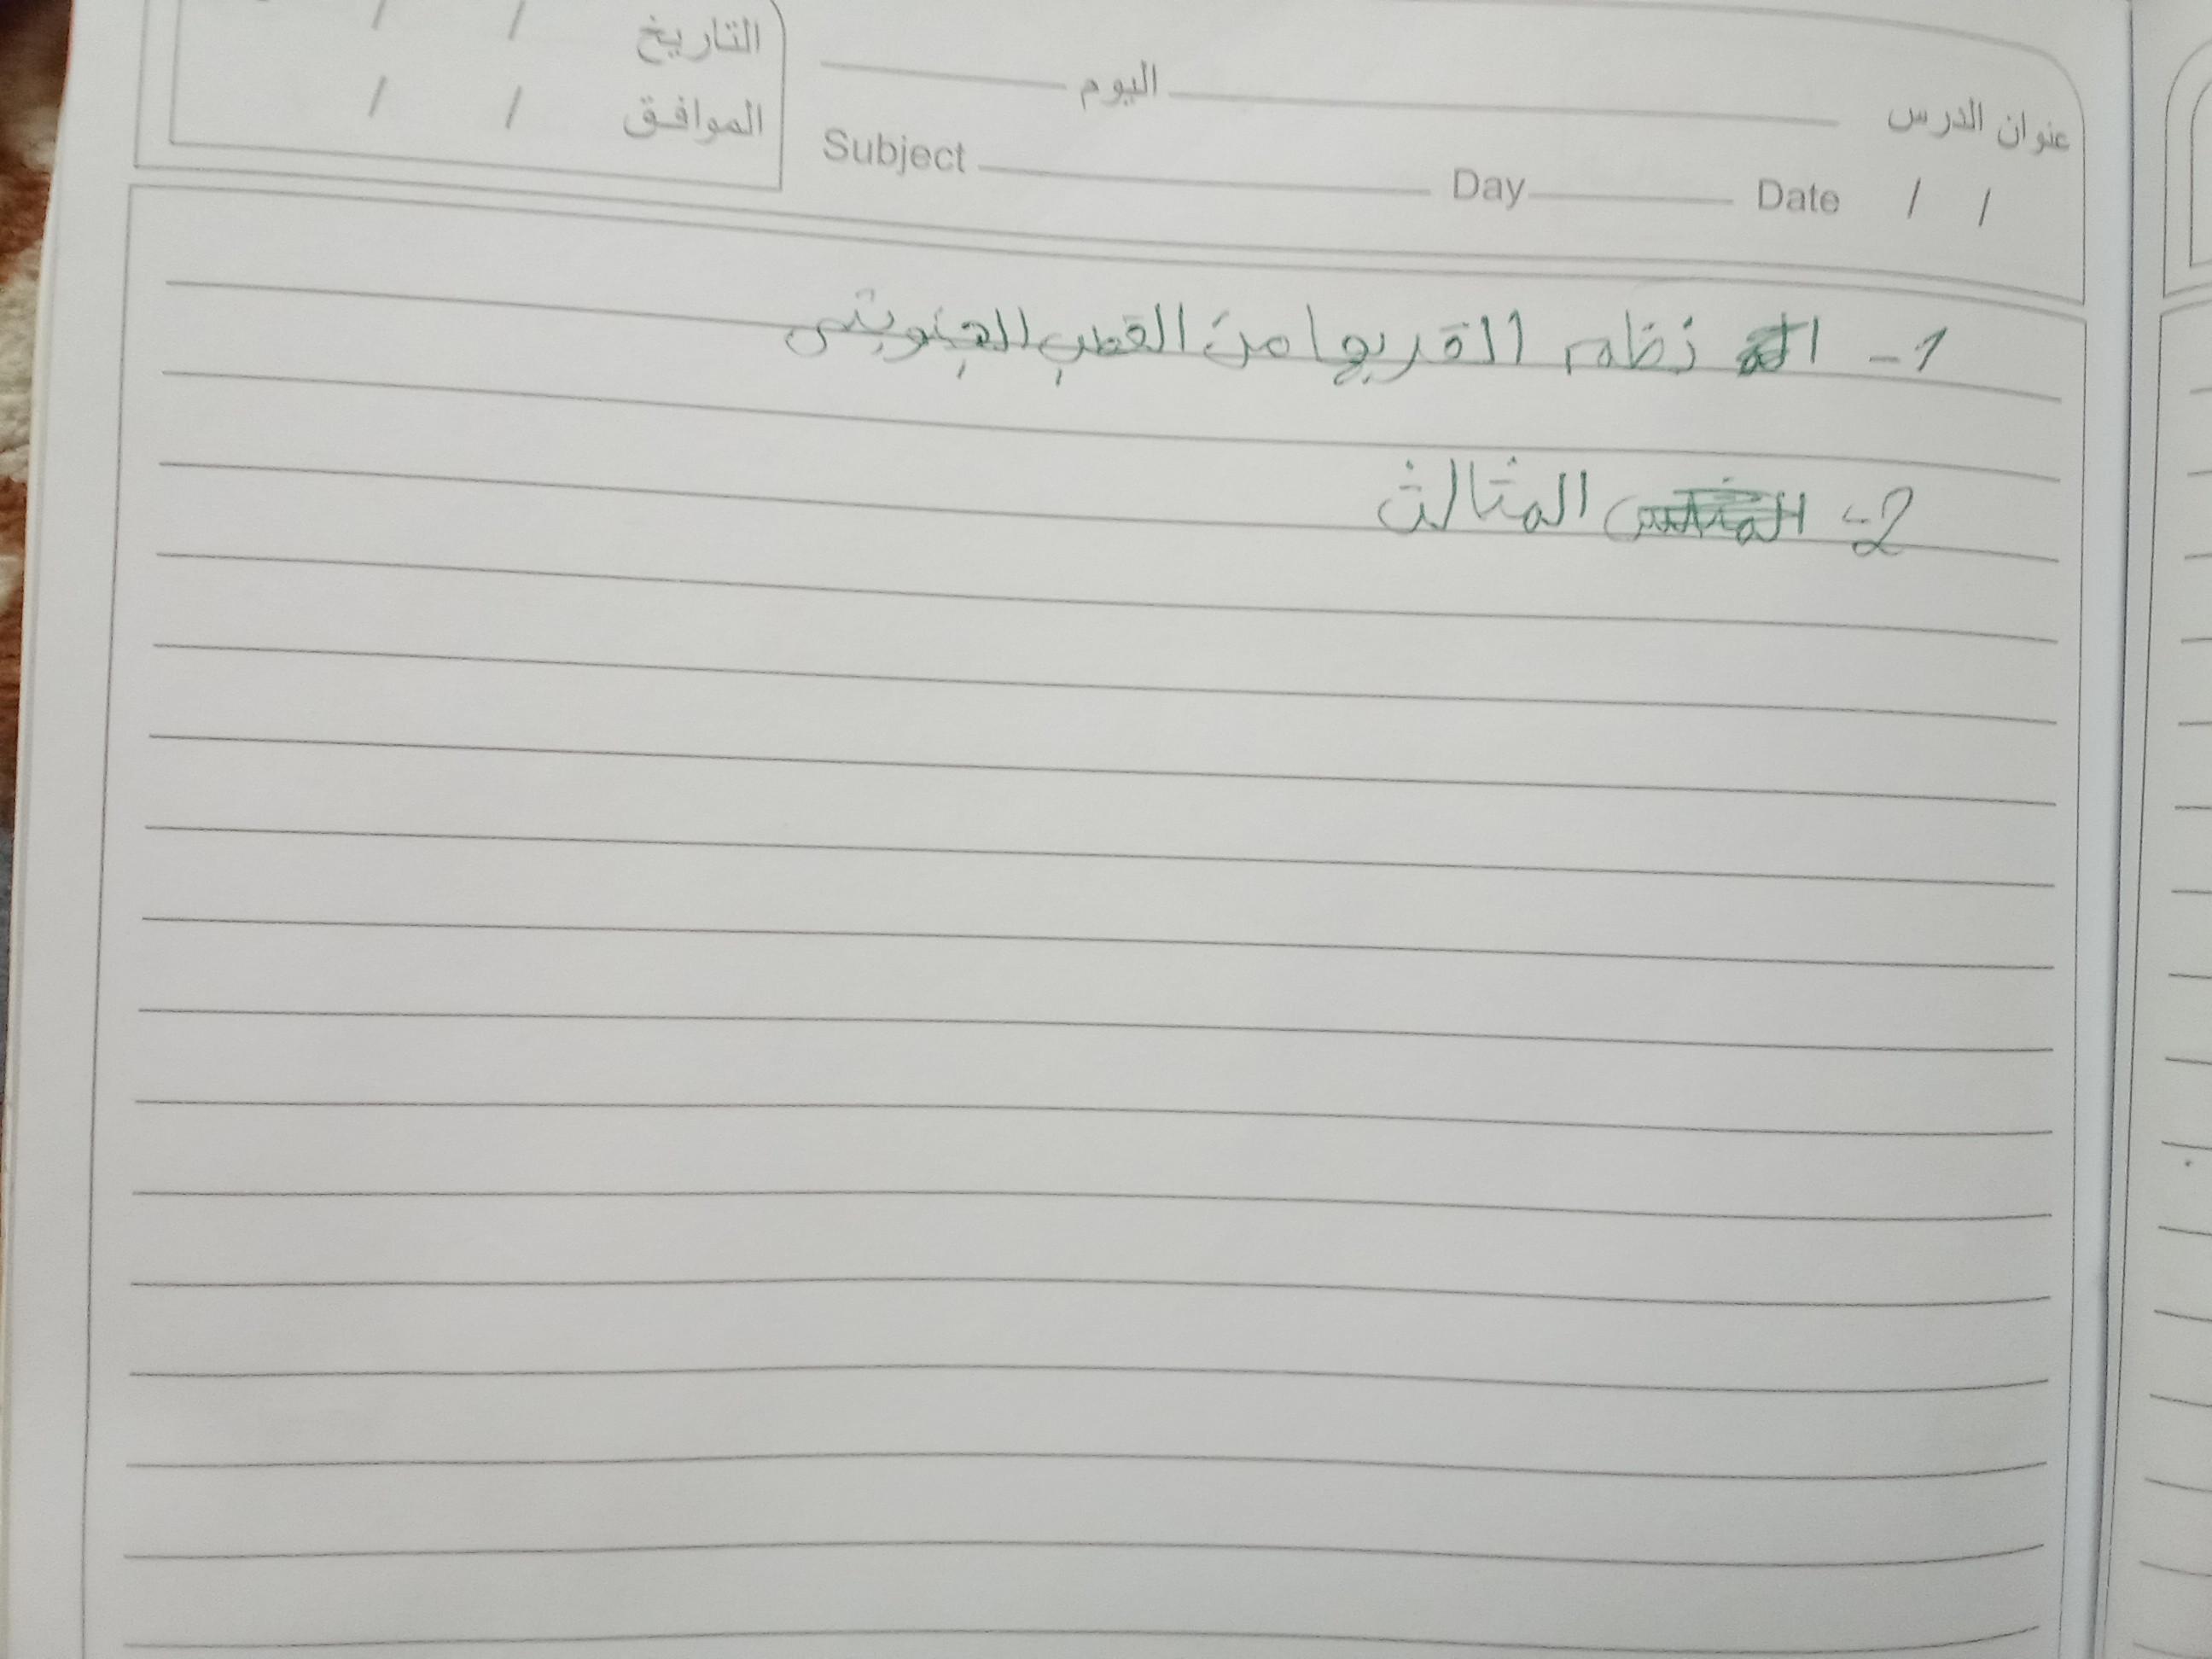 التاريخ / /
اليوم
عنوان الدرس
الموافق / /
Subject Day Date / /
1- نظم القربها من القطب الجنوبتى
2- المثالث